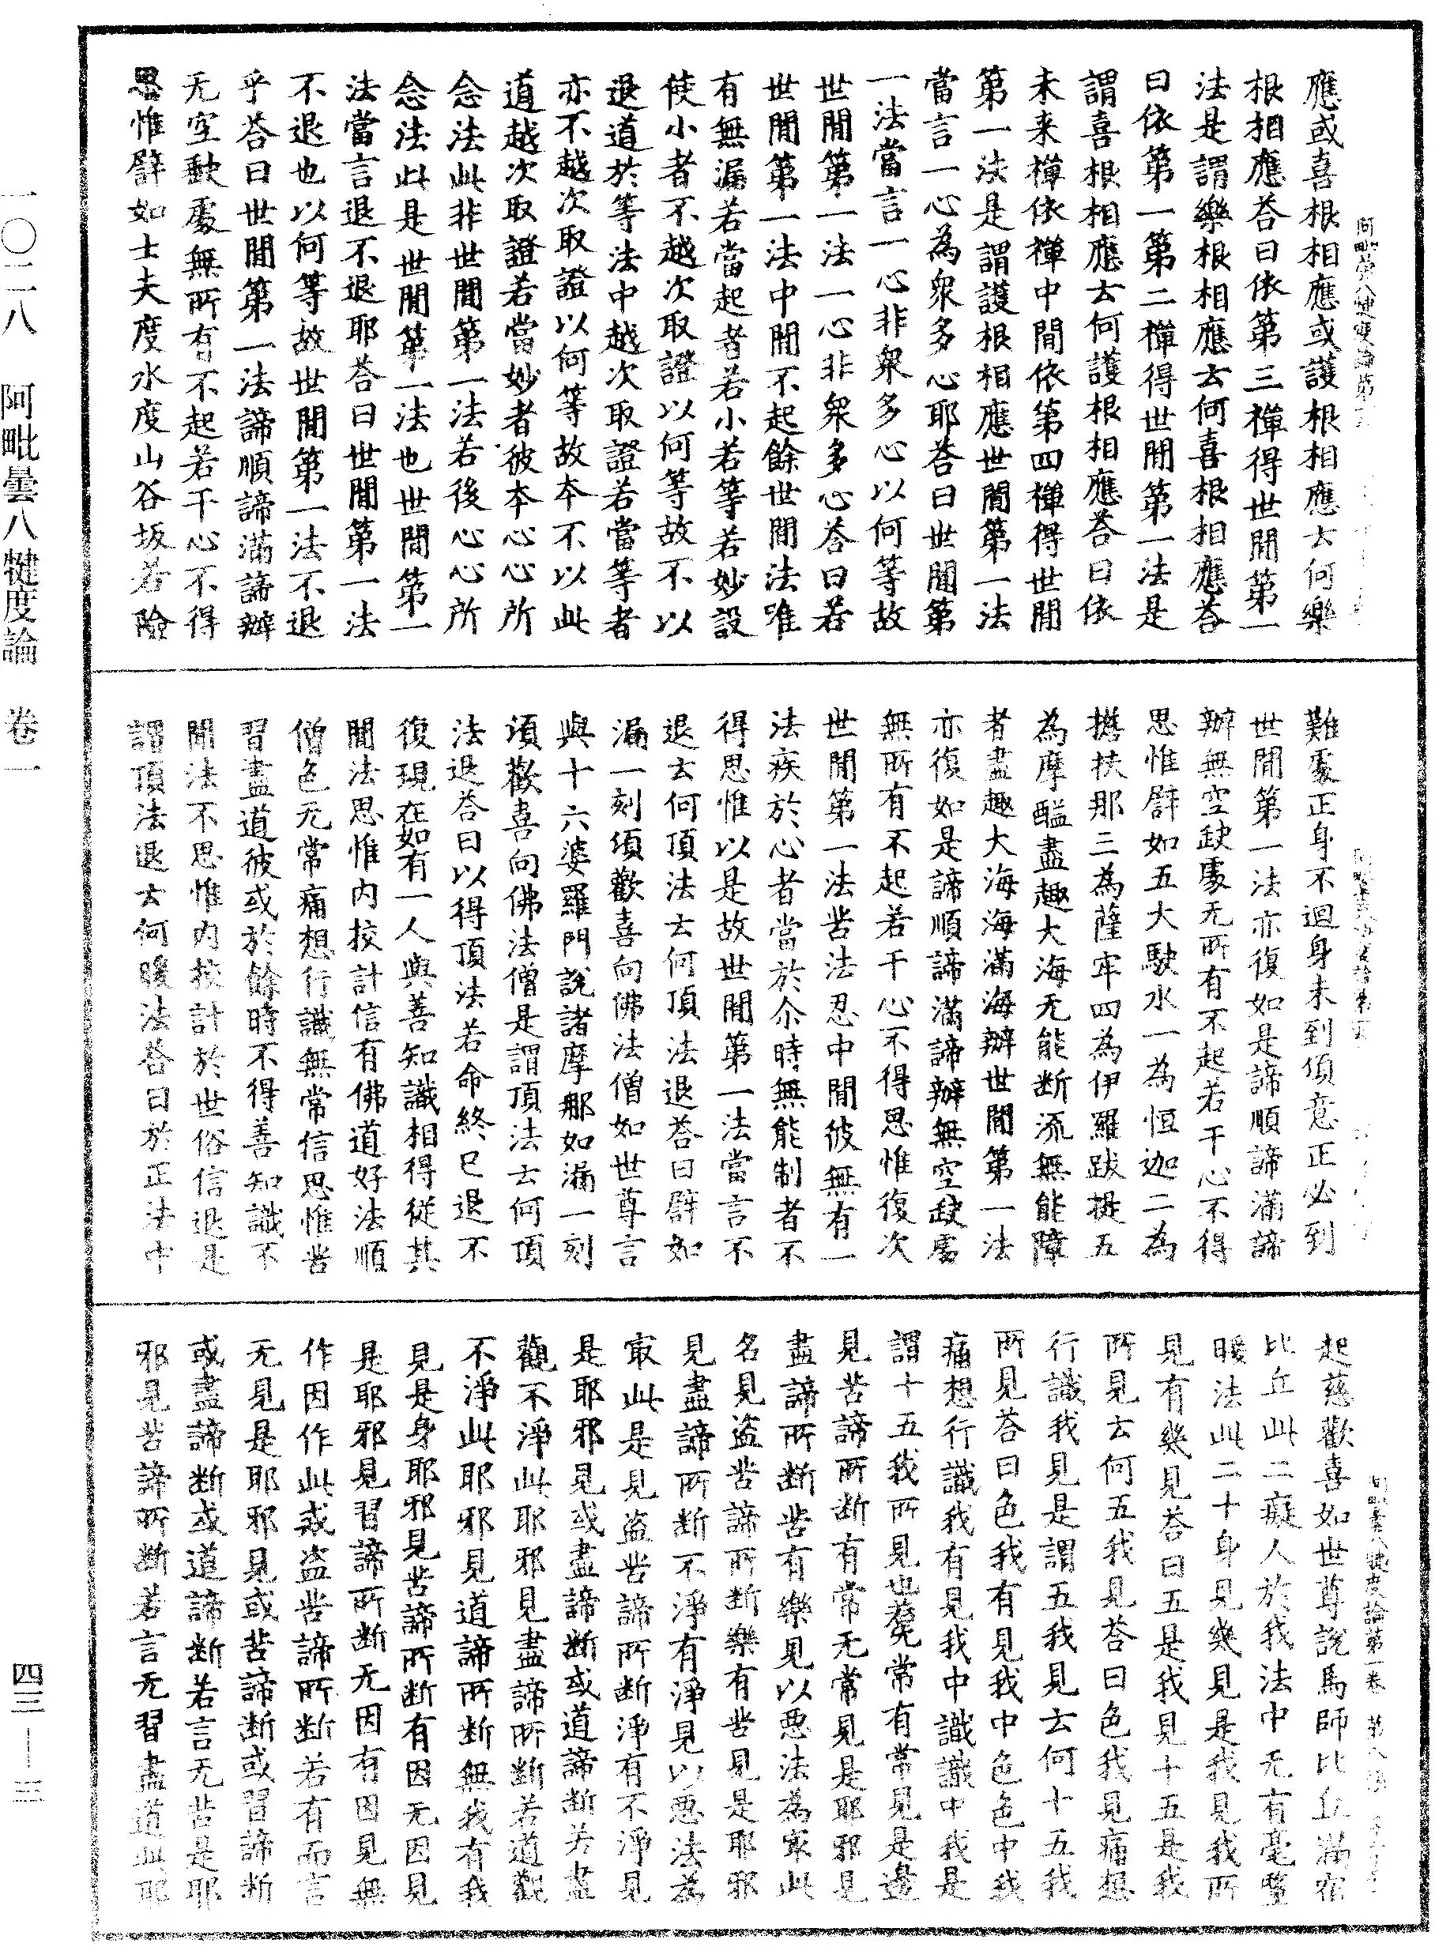 應或喜根相應或護根相應云何樂
根相應荅曰依第三禪得世閒第一
法是謂樂根相應云何喜根相應荅
曰依第一第二禪得世閒第一法是
謂喜根相應云何護根相應荅曰依
未来禪依禪中間依第四禪得世閒
第一法是謂護根相應世閒第一法
當言一心為衆多心耶荅曰世閒第
一法當言一心非衆多心以何等故
世閒第一法一心非衆多心荅曰若
世閒第一法中閒不起餘世閒法唯
有無漏若當起者若小若等若妙設
使小者不越次取證以何等故不以
退道於等法中越次取證若當等者
亦不越次取證以何等故本不以此
道越次取證若當妙者彼本心心所
念法此非世閒第一法若後心心所
念法此是世閒第一法也世間第一
法當言退不退耶荅曰世閒第一法
不退也以何等故世閒第一法不退
乎荅曰世閒第一法諦順諦滿諦辦
无空缺處無所有不起若干心不得
思惟譬如士夫度水度山谷坂若險
難處正身不迴身未到須意正必到
世閒第一法亦復如是諦順諦滿諦
辦無空缺處无所有不起若干心不得
思惟譬如五大駛水一為恒迦二為
搖扶那三為薩牢四為伊羅跋提五
為摩醯盡趣大海无能断流無能障
者盡趣大海海滿海辦世閒第一法
亦復如是諦順諦滿諦辦無空缺處
無所有不起若干心不得思惟復次
世閒第一法苦法忍中閒彼無有一
法疾於心者當於尒時無能制者不
得思惟以是故世閒第一法當言不
退云何頂法云何頂法退荅曰譬如
漏一刻須歡喜向佛法僧如世尊言
與十六婆羅門說諸摩那如漏一刻
須歡喜向佛法僧是謂頂法云何頂
法退荅曰以得頂法若命終已退不
復現在如有一人與善知識相得従其
聞法思惟內挍計信有佛道好法順
僧色无常痛想行識無常信思惟苦
習盡道彼或於餘時不得善知識不
聞法不思惟內挍計於世俗信退是
謂頂法退云何暖法荅曰於正法中
起慈歡喜如世尊說馬師比丘滿宿
比丘此二癡人於我法中无有毫釐
暖法此二十身見幾見是我見我所
見有幾見荅曰五是我見十五是我
所見云何五我見荅曰色我見痛想
行識我見是謂五我見云何十五我
所見荅曰色我有見我中色色中我
痛想行識我有見我中識識中我是
謂十五我所見也若常有常見是邊
見苦諦所断有常无常見是耶邪見
盡諦所断苦有樂見以惡法為㝡此
名見盗苦諦所断樂有苦見是耶邪
見盡諦所断不淨有淨見以惡法為
㝡此是見盗苦諦所断淨有不淨見
是耶邪見或盡諦断或道諦断若盡
觀不淨此耶邪見盡諦所断若道觀
不淨此耶邪見道諦所断無我有我
見是身耶邪見苦諦所断有因无因見
是耶邪見習諦所断无因有因見無
作因作此戒盗苦諦所断若有而言
无見是耶邪見或苦諦断或習諦断
或盡諦断或道諦断若言无苦是耶
邪見苦諦所断若言无習盡道此耶
一〇二八　阿毗曇八犍度論　卷一
四三—三